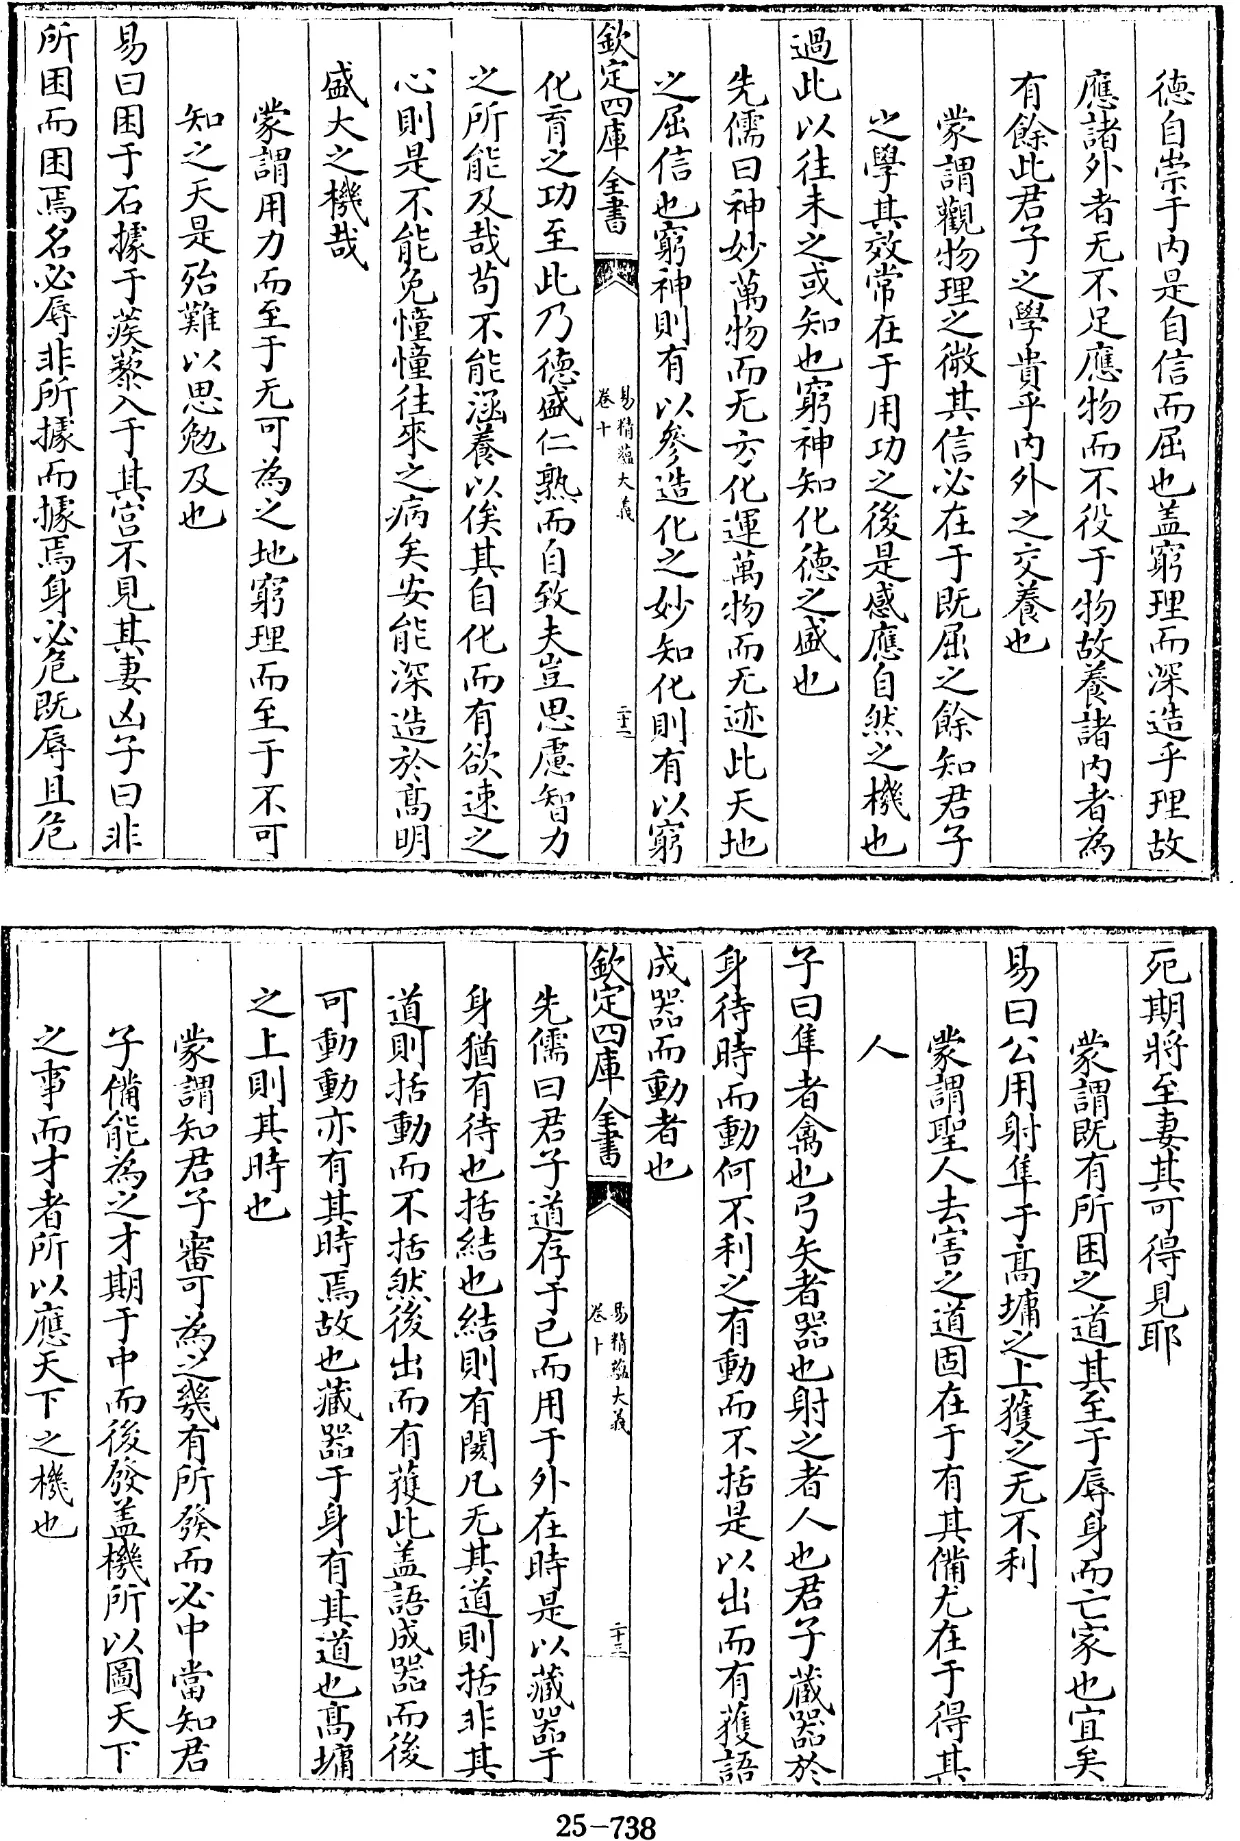 德自崇于内是自信而屈也盖窮理而深造乎理故
應諸外者无不足應物而不役于物故養諸内者為
有餘此君子之學貴乎内外之交養也
蒙謂觀物理之微其信必在于既屈之餘知君子
之學其效常在于用功之後是感應自然之機也
過此以往未之或知也窮神知化德之盛也
先儒曰神妙萬物而无方化運萬物而无迹此天地
之屈信也窮神則有以參造化之妙知化則有以窮
欽定四庫全書
易精蘊大義
卷十
二十二
化育之功至此乃德盛仁熟而自致夫豈思慮智力
之所能及哉苟不能涵養以俟其自化而有欲速之
心則是不能免憧憧往來之病矣安能深造於髙明
盛大之機哉
蒙謂用力而至于无可為之地窮理而至于不可
知之天是殆難以思勉及也
易曰困于石據于蒺藜入于其宫不見其妻凶子曰非
所困而困焉名必辱非所據而據焉身必危既辱且危
死期將至妻其可得見耶
蒙謂既有所困之道其至于辱身而亡家也宜矣
易曰公用射隼于髙墉之上獲之无不利
蒙謂聖人去害之道固在于有其備尤在于得其
人
子曰隼者禽也弓矢者器也射之者人也君子藏器於
身待時而動何不利之有動而不括是以出而有獲語
成器而動者也
欽定四庫全書
易精蘊大義
卷十
二十三
先儒曰君子道存于己而用于外在時是以藏器于
身猶有待也括結也結則有閡凡无其道則括非其
道則括動而不括然後出而有獲此盖語成器而後
可動動亦有其時焉故也藏器于身有其道也髙墉
之上則其時也
蒙謂知君子審可為之幾有所發而必中當知君
子備能為之才期于中而後發盖機所以圖天下
之事而才者所以應天下之機也
25-738